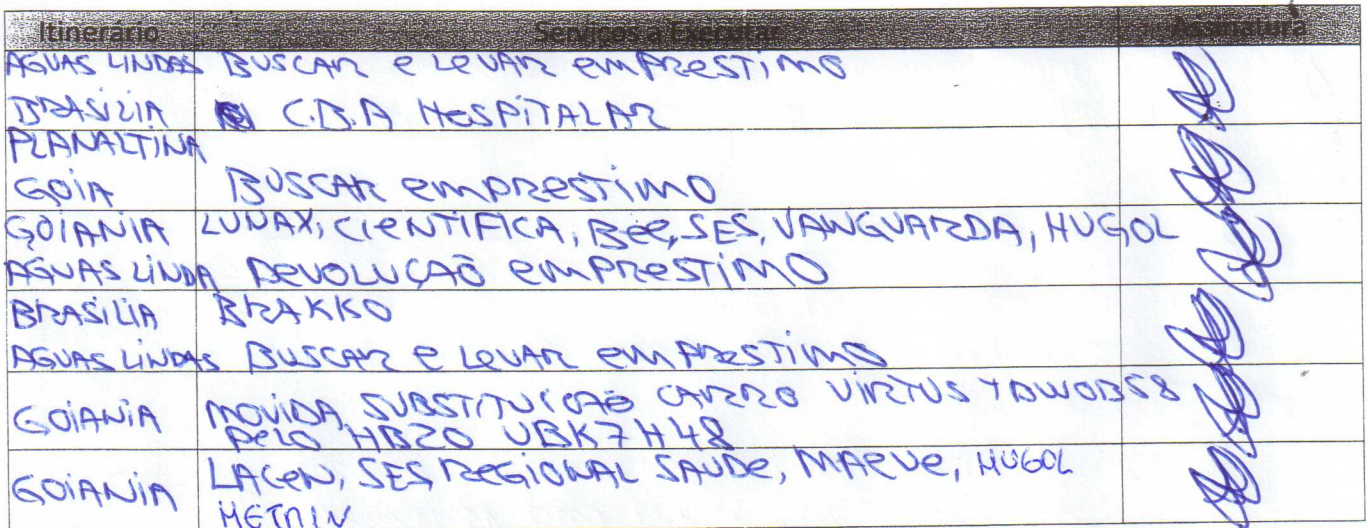 Itinerário Serviços a Executar Assinatura
AGUAS LINDAS BUSCAR e LEVAR EMPRESTIMO
BRASILIA C.B.A HOSPITALAR
PLANALTINA
GOIA BUSCAR EMPRESTIMO
GOIANIA LUNAX, CIENTIFICA, Bee, SES, VANGUARDA, HUGOL
AGUAS LINDA DEVOLUÇAÕ EMPRESTIMO
BRASILIA BRAKKO
AGUAS LINDAS BUSCAR e LEVAR EMPRESTIMO
GOIANIA MOVIDA SUBSTITUIÇAÕ CARRO VIRTUS
PELO HB20 UBK7H48
GOIANIA LACEN, SES REGIONAL SAUDE, MAEVE, HUGOL